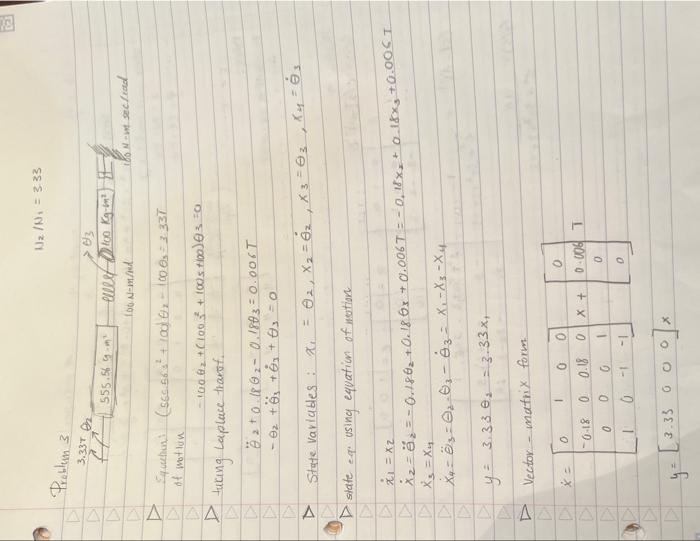 N2/N1 = 3.33
Problem 3
3.33T θ2
θ3
555.56 g.m²
100 Kg-m²
100 N-m/rad
100 N-m sec/rad
Equation: (555.56s² + 100)θ2 - 100θ3 = 3.33T
of motion
-100θ2 + (100s² + 100s + 100)θ3 = 0
taking Laplace transf.
θ̈2 + 0.18θ2 - 0.18θ3 = 0.006T
-θ2 + θ̈3 + θ̇3 + θ3 = 0
State Variables : x1 = θ2, x2 = θ̇2, x3 = θ3, x4 = θ̇3
state eq. using equation of motion
ẋ1 = x2
ẋ2 = θ̈2 = -0.18θ2 + 0.18θ3 + 0.006T = -0.18x2 + 0.18x3 + 0.006T
ẋ3 = x4
ẋ4 = θ̈3 = θ2 - θ3 - θ̇3 = x1 - x3 - x4
y = 3.33θ2 = 3.33x1
Vector - matrix form
ẋ = [ 0 1 0 0 ] [ 0 ]
-0.18 0 0.18 0 x + 0.006 T
0 0 0 1 0
1 0 -1 -1 0
y = [3.33 0 0 0] x